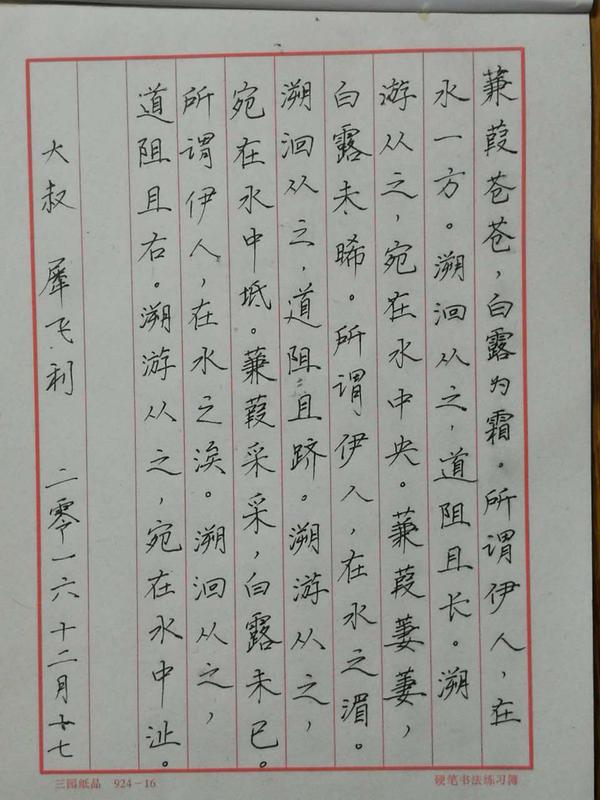 蒹葭苍苍，白露为霜。所谓伊人，在
水一方。溯洄从之，道阻且长。溯
游从之，宛在水中央。蒹葭萋萋，
白露未晞。所谓伊人，在水之湄。
溯洄从之，道阻且跻。溯游从之，
宛在水中坻。蒹葭采采，白露未已。
所谓伊人，在水之涘。溯洄从之，
道阻且右。溯游从之，宛在水中沚。
大叔 犀飞利 二零一六十二月廿七
三园纸品 924-16
硬笔书法练习簿